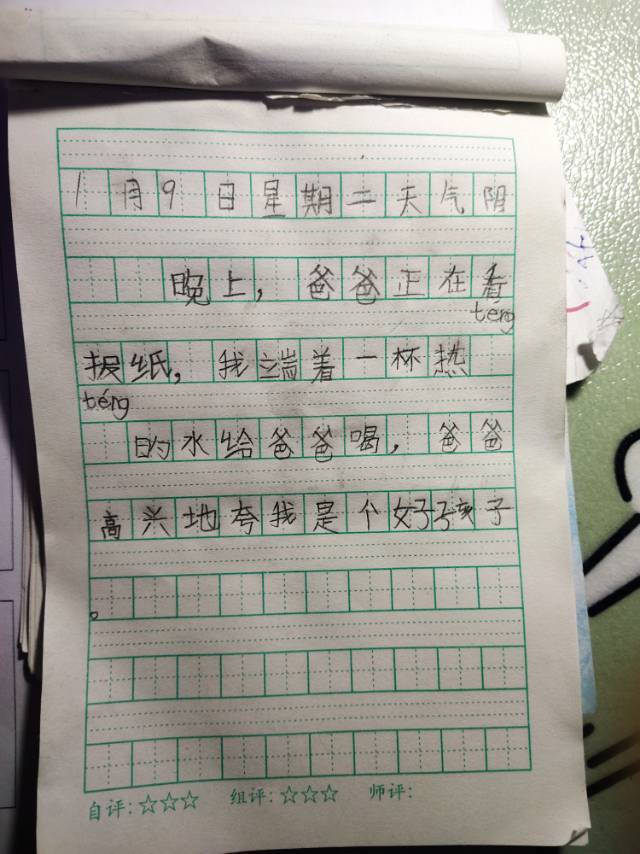 1月9日星期二天气阴
晚上，爸爸正在看
teng
报纸，我端着一杯热
téng
的水给爸爸喝，爸爸
高兴地夸我是个好孩子
。
自评：☆☆☆ 组评：☆☆☆ 师评：